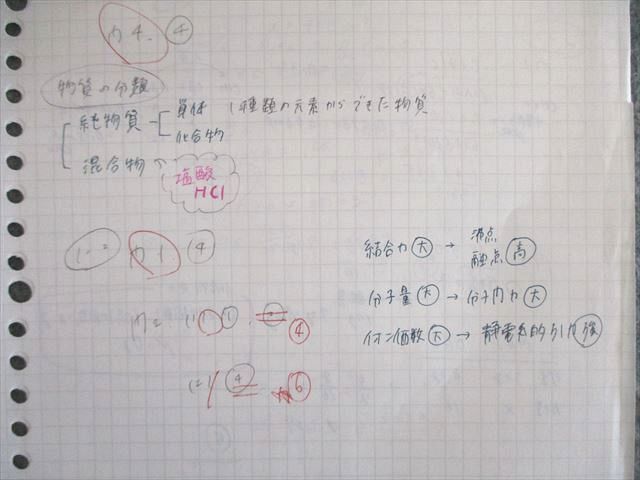 問4. ④
物質の分類
純物質 単体 1種類の元素からできた物質
化合物
混合物
塩酸
HCl
1-2 問1 ④
問2 (1) ① ④
(2) ④ ⑥
結合力 大 → 沸点
融点 高
分子量 大 → 分子間力 大
イオン価数 大 → 静電気的引力 強